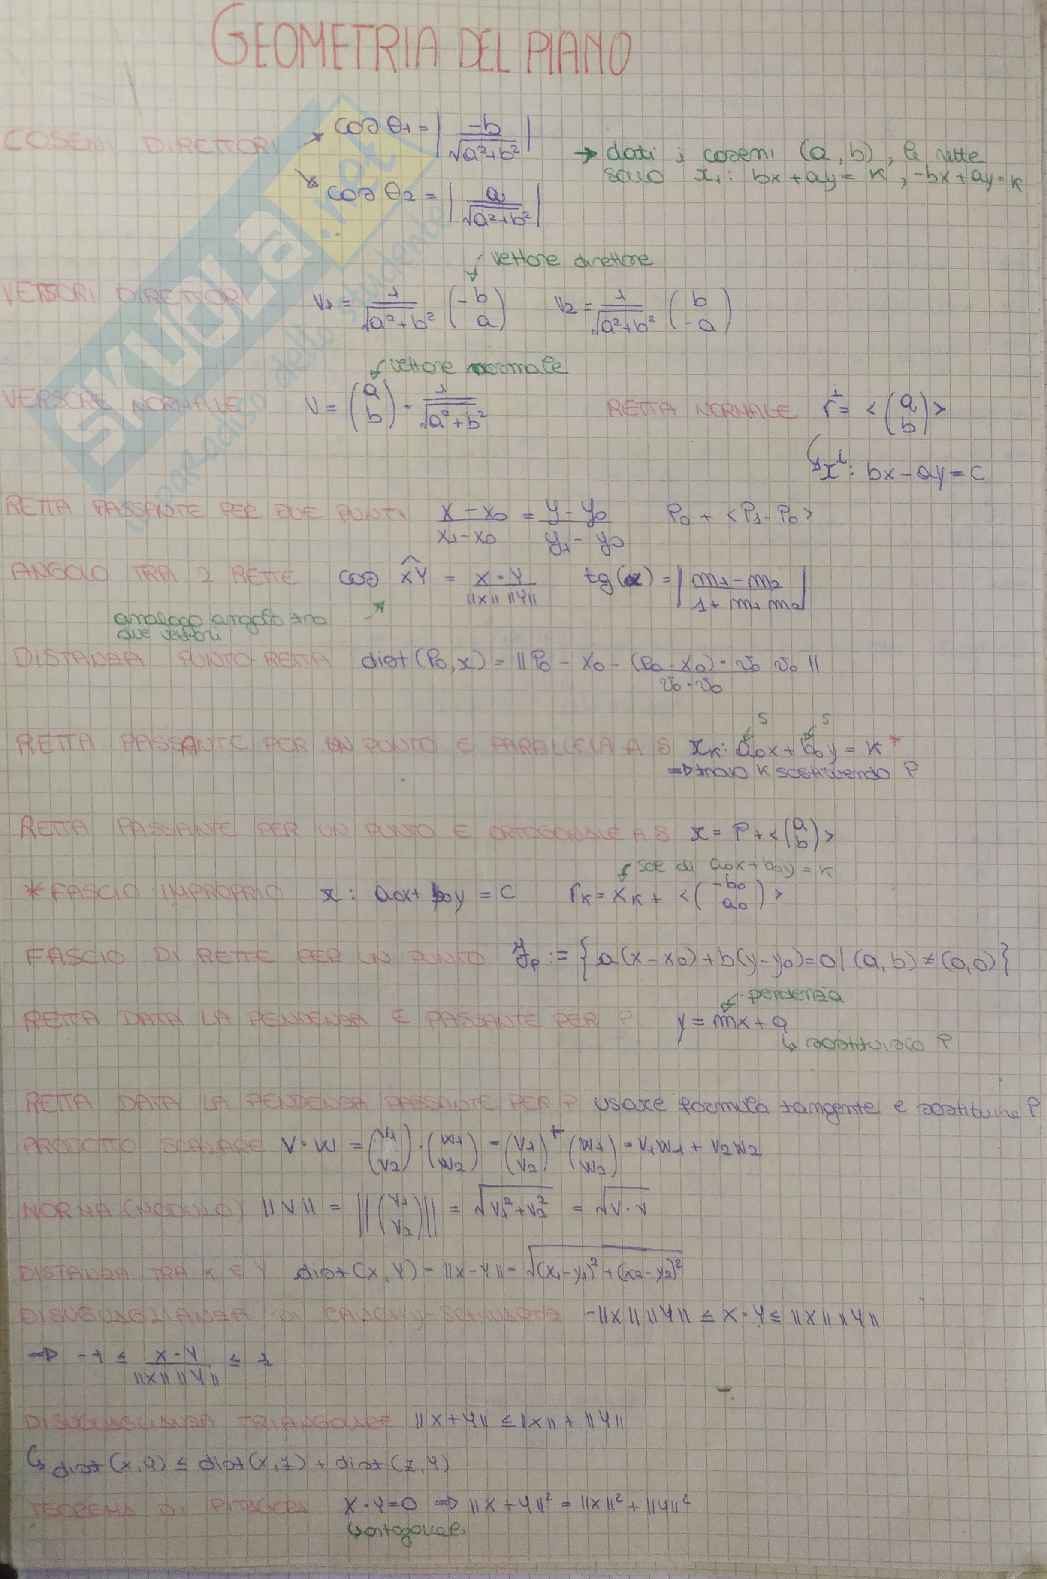 GEOMETRIA DEL PIANO
COSENI DIRETTORI → cos θ1 = |-b / √a²+b²|
→ cos θ2 = |a / √a²+b²|
→ dati i coseni (a,b), le rette
sono r1: bx + ay = k, -bx + ay = k
vettore direttore
VERSORI DIRETTORI v1 = 1/√a²+b² (-b a) v2 = 1/√a²+b² (b -a)
vettore normale
VERSORE NORMALE v = (a b) · 1/√a²+b² RETTA NORMALE r⊥ = <(a b)>
↳ r⊥: bx - ay = c
RETTA PASSANTE PER DUE PUNTI x-x0 / x1-x0 = y-y0 / y1-y0 P0 + <P1-P0>
ANGOLO TRA 2 RETTE cos XY = X·Y / ||X|| ||Y|| tg(α) = |m1-m2 / 1+m1m2|
analogo angolo tra
due vettori
DISTANZA PUNTO-RETTA dist(P0,r) = ||P0 - X0 - (P0-X0)·v0 / v0·v0 v0||
S S
RETTA PASSANTE PER UN PUNTO E PARALLELA A S rk: a0x + b0y = k *
⇒ trovo k sostituendo P
RETTA PASSANTE PER UN PUNTO E ORTOGONALE A S r = P + <(a b)>
a0x + b0y = k
* FASCIO IMPROPRIO r: a0x + b0y = c rk = Xk + <(-b0 a0)>
FASCIO DI RETTE PER UN PUNTO Fp := {a(x-x0) + b(y-y0) = 0 | (a,b) ≠ (0,0)}
pendenza
RETTA DATA LA PENDENZA E PASSANTE PER P y = mx + q
↳ sostituisco P
RETTA DATA LA PENDENZA PASSANTE PER P usare formula tangente e sostituire P
PRODOTTO SCALARE V·W = (v1 v2)·(w1 w2) = (v1 v2)^t (w1 w2) = v1w1 + v2w2
NORMA (MODULO) ||V|| = ||(v1 v2)|| = √v1²+v2² = √V·V
DISTANZA TRA X E Y dist(X,Y) = ||X-Y|| = √(x1-y1)² + (x2-y2)²
DISUGUAGLIANZA DI CAUCHY-SCHWARTZ -||X|| ||Y|| ≤ X·Y ≤ ||X|| ||Y||
⇒ -1 ≤ X·Y / ||X|| ||Y|| ≤ 1
DISUGUAGLIANZA TRIANGOLARE ||X+Y|| ≤ ||X|| + ||Y||
↳ dist(X,Y) ≤ dist(X,Z) + dist(Z,Y)
TEOREMA DI PITAGORA X·Y=0 ⇒ ||X+Y||² = ||X||² + ||Y||²
↳ ortogonali
SKUOLA.net